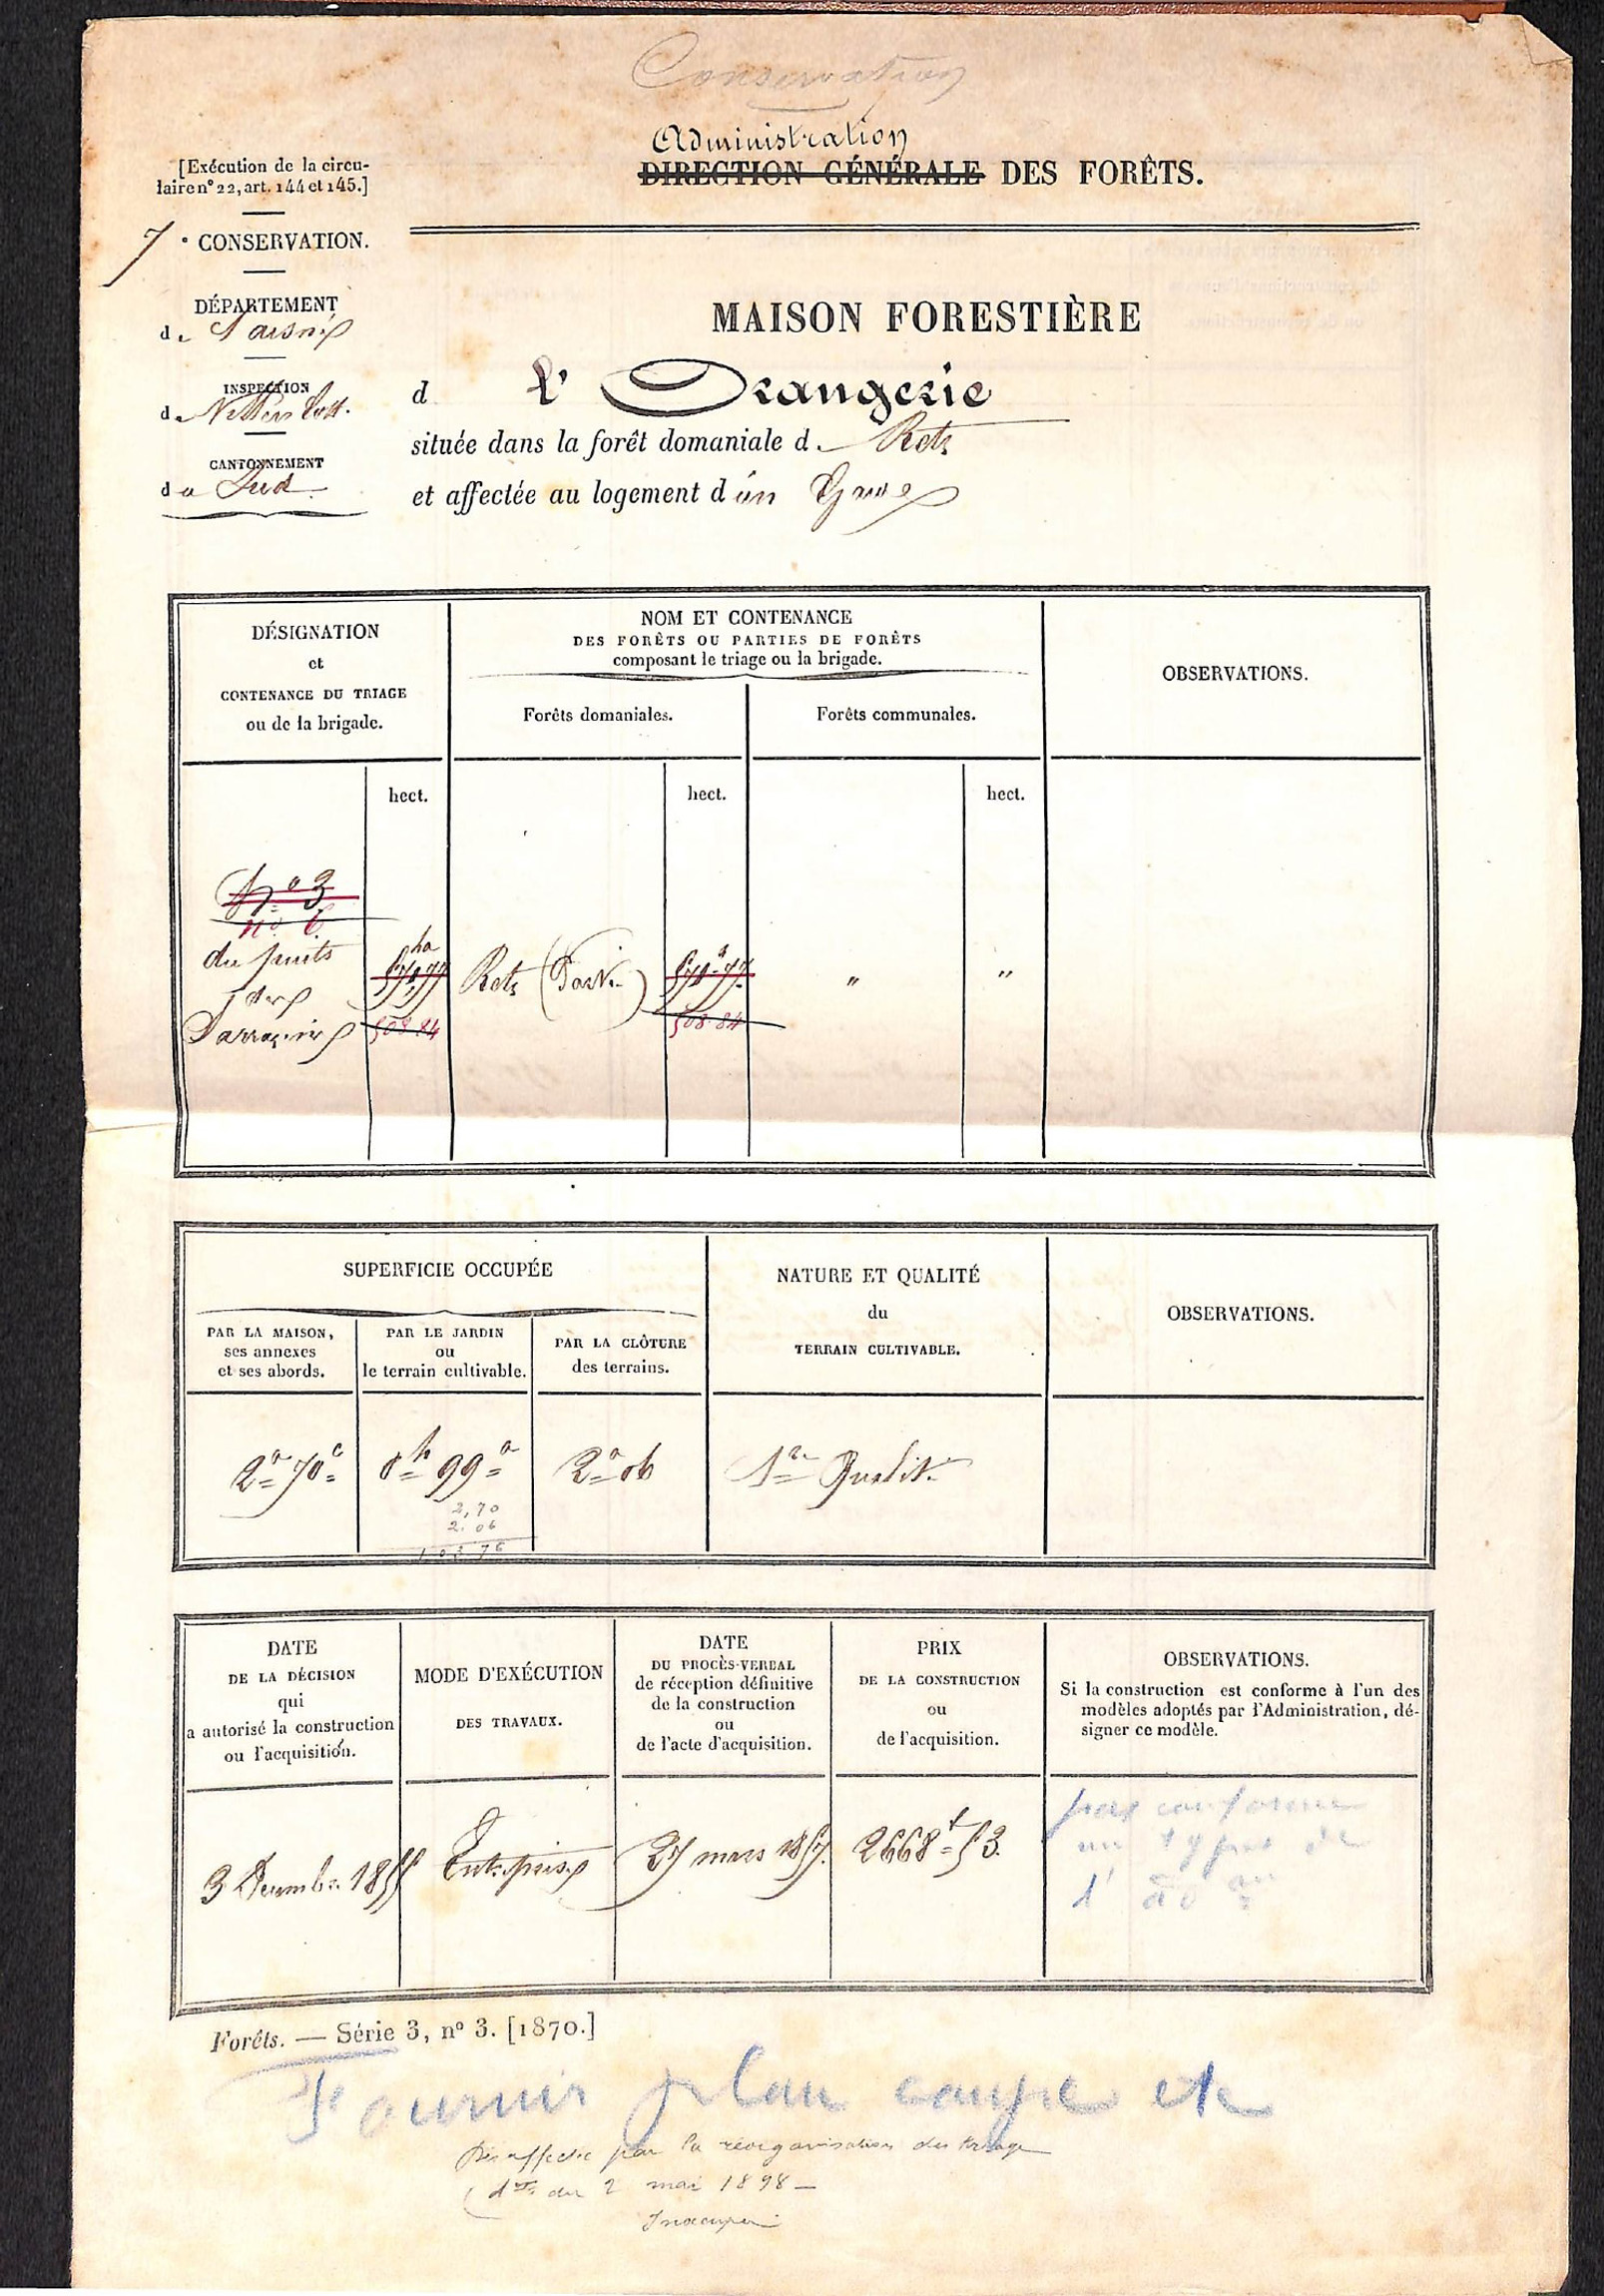 Conservation
Administration
DIRECTION GÉNÉRALE DES FORÊTS.
[Exécution de la circu-
laire n° 22, art. 144 et 145.]
7e CONSERVATION.
DÉPARTEMENT
de l'aisne
INSPECTION
de Villers Cott.
CANTONNEMENT
du Sud
MAISON FORESTIÈRE
d l'Orangerie
située dans la forêt domaniale de Retz
et affectée au logement d'un Garde
DÉSIGNATION
et
CONTENANCE DU TRIAGE
ou de la brigade.
NOM ET CONTENANCE
DES FORÊTS OU PARTIES DE FORÊTS
composant le triage ou la brigade.
Forêts domaniales.
Forêts communales.
OBSERVATIONS.
hect.
hect.
hect.
n° 3
n° 6.
du puits
des
Sarrasins
ha
508.84
Retz (Partie)
508.84
"
"
SUPERFICIE OCCUPÉE
PAR LA MAISON,
ses annexes
et ses abords.
PAR LE JARDIN
ou
le terrain cultivable.
PAR LA CLÔTURE
des terrains.
NATURE ET QUALITÉ
du
TERRAIN CULTIVABLE.
OBSERVATIONS.
2a 70c
0h 99a
2a 06
1re Qualité
2,70
2.06
103 76
DATE
DE LA DÉCISION
qui
a autorisé la construction
ou l'acquisition.
MODE D'EXÉCUTION
DES TRAVAUX.
DATE
DU PROCÈS-VERBAL
de réception définitive
de la construction
ou
de l'acte d'acquisition.
PRIX
DE LA CONSTRUCTION
ou
de l'acquisition.
OBSERVATIONS.
Si la construction est conforme à l'un des
modèles adoptés par l'Administration, dé-
signer ce modèle.
3 Decembre 1855
Entreprise
27 mars 1857.
2668f 53.
pas conforme
au types de
l' adon
Forêts. — Série 3, n° 3. [1870.]
Fournir plan coupe etc
Désaffectée par la réorganisation des triages
(don du 2 mai 1898 —
Inoccupée